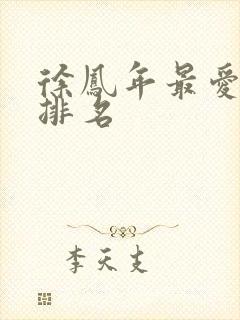 徐鳳年最愛
排名
李天支